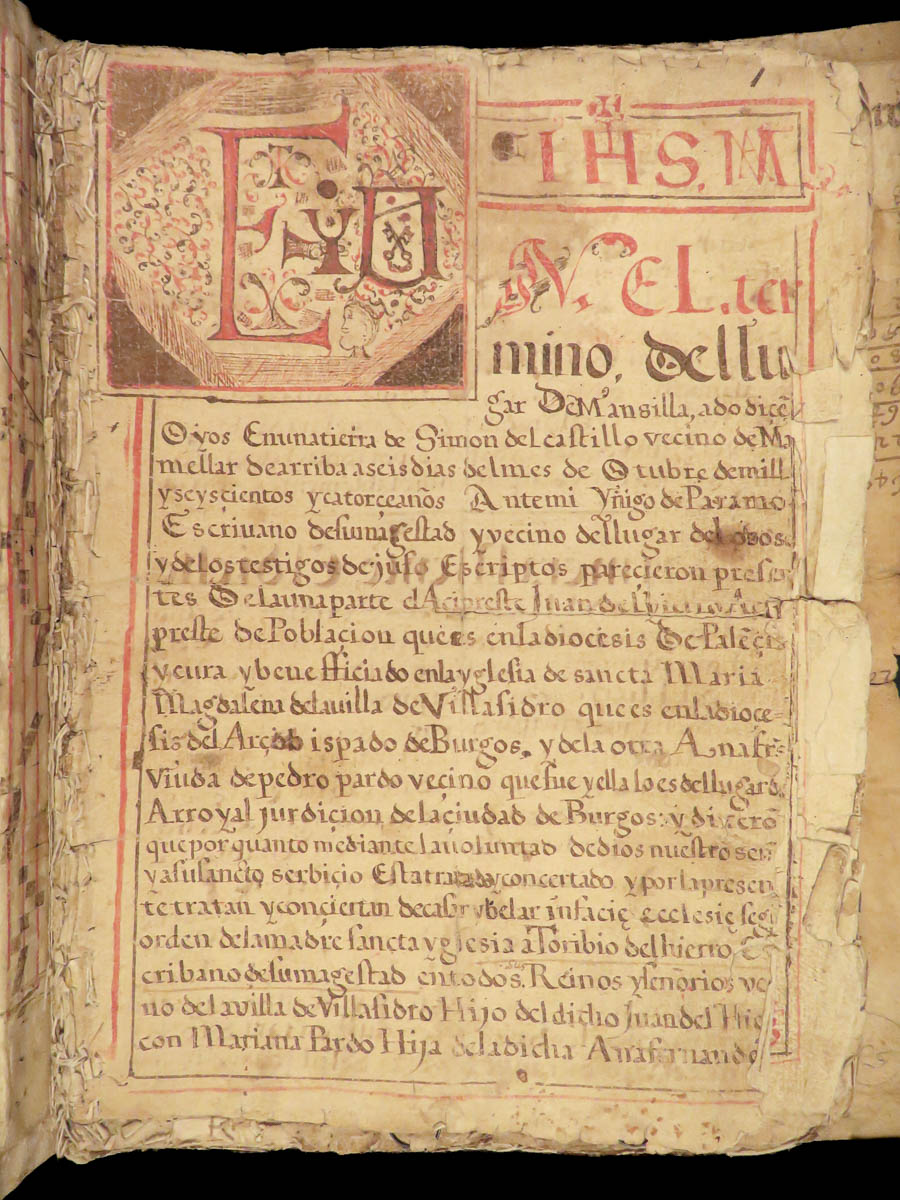 IHS, MA
EN, EL. ter
mino, dellu
gar De Mansilla, ado dicē
Oyos En una tierra de Simon del castillo vecino de Ma
mellar de arriba a seis dias del mes de Otubre de mill
y seys çientos y catorçe años Ante mi Yñigo de Paramo
Escrivano de su magestad y vecino del lugar de
y de los testigos de juso Escriptos pareçieron presen
tes De la una parte el Acipreste Juan del Aci
preste de Poblaçion que es en la diocesis De Palēçia
y cura y beneffiçiado en la yglesia de sancta Maria
Magdalena de la villa de Villasidro que es en la dioce-
sis del Arçobispado de Burgos, y de la otra Ana frz
Viuda de pedro pardo vecino que fue y ella lo es del lugar de
Arroyal jurdiçion de la çiudad de Burgos: y dixerō
que por quanto mediante la voluntad de dios nuestro señ
y a su sancto serbiçio Esta tratado y conçertado y por la presen
te tratan y conçiertan de casar y belar in façie ecclesie segū
orden de la madre sancta yglesia a Toribio del hierro Es
cribano de su magestad en todos sus Reinos y señorios veci
no de la villa de Villasidro Hijo del dicho Juan del Hie
con Mariana Pardo Hija de la dicha Ana fernande